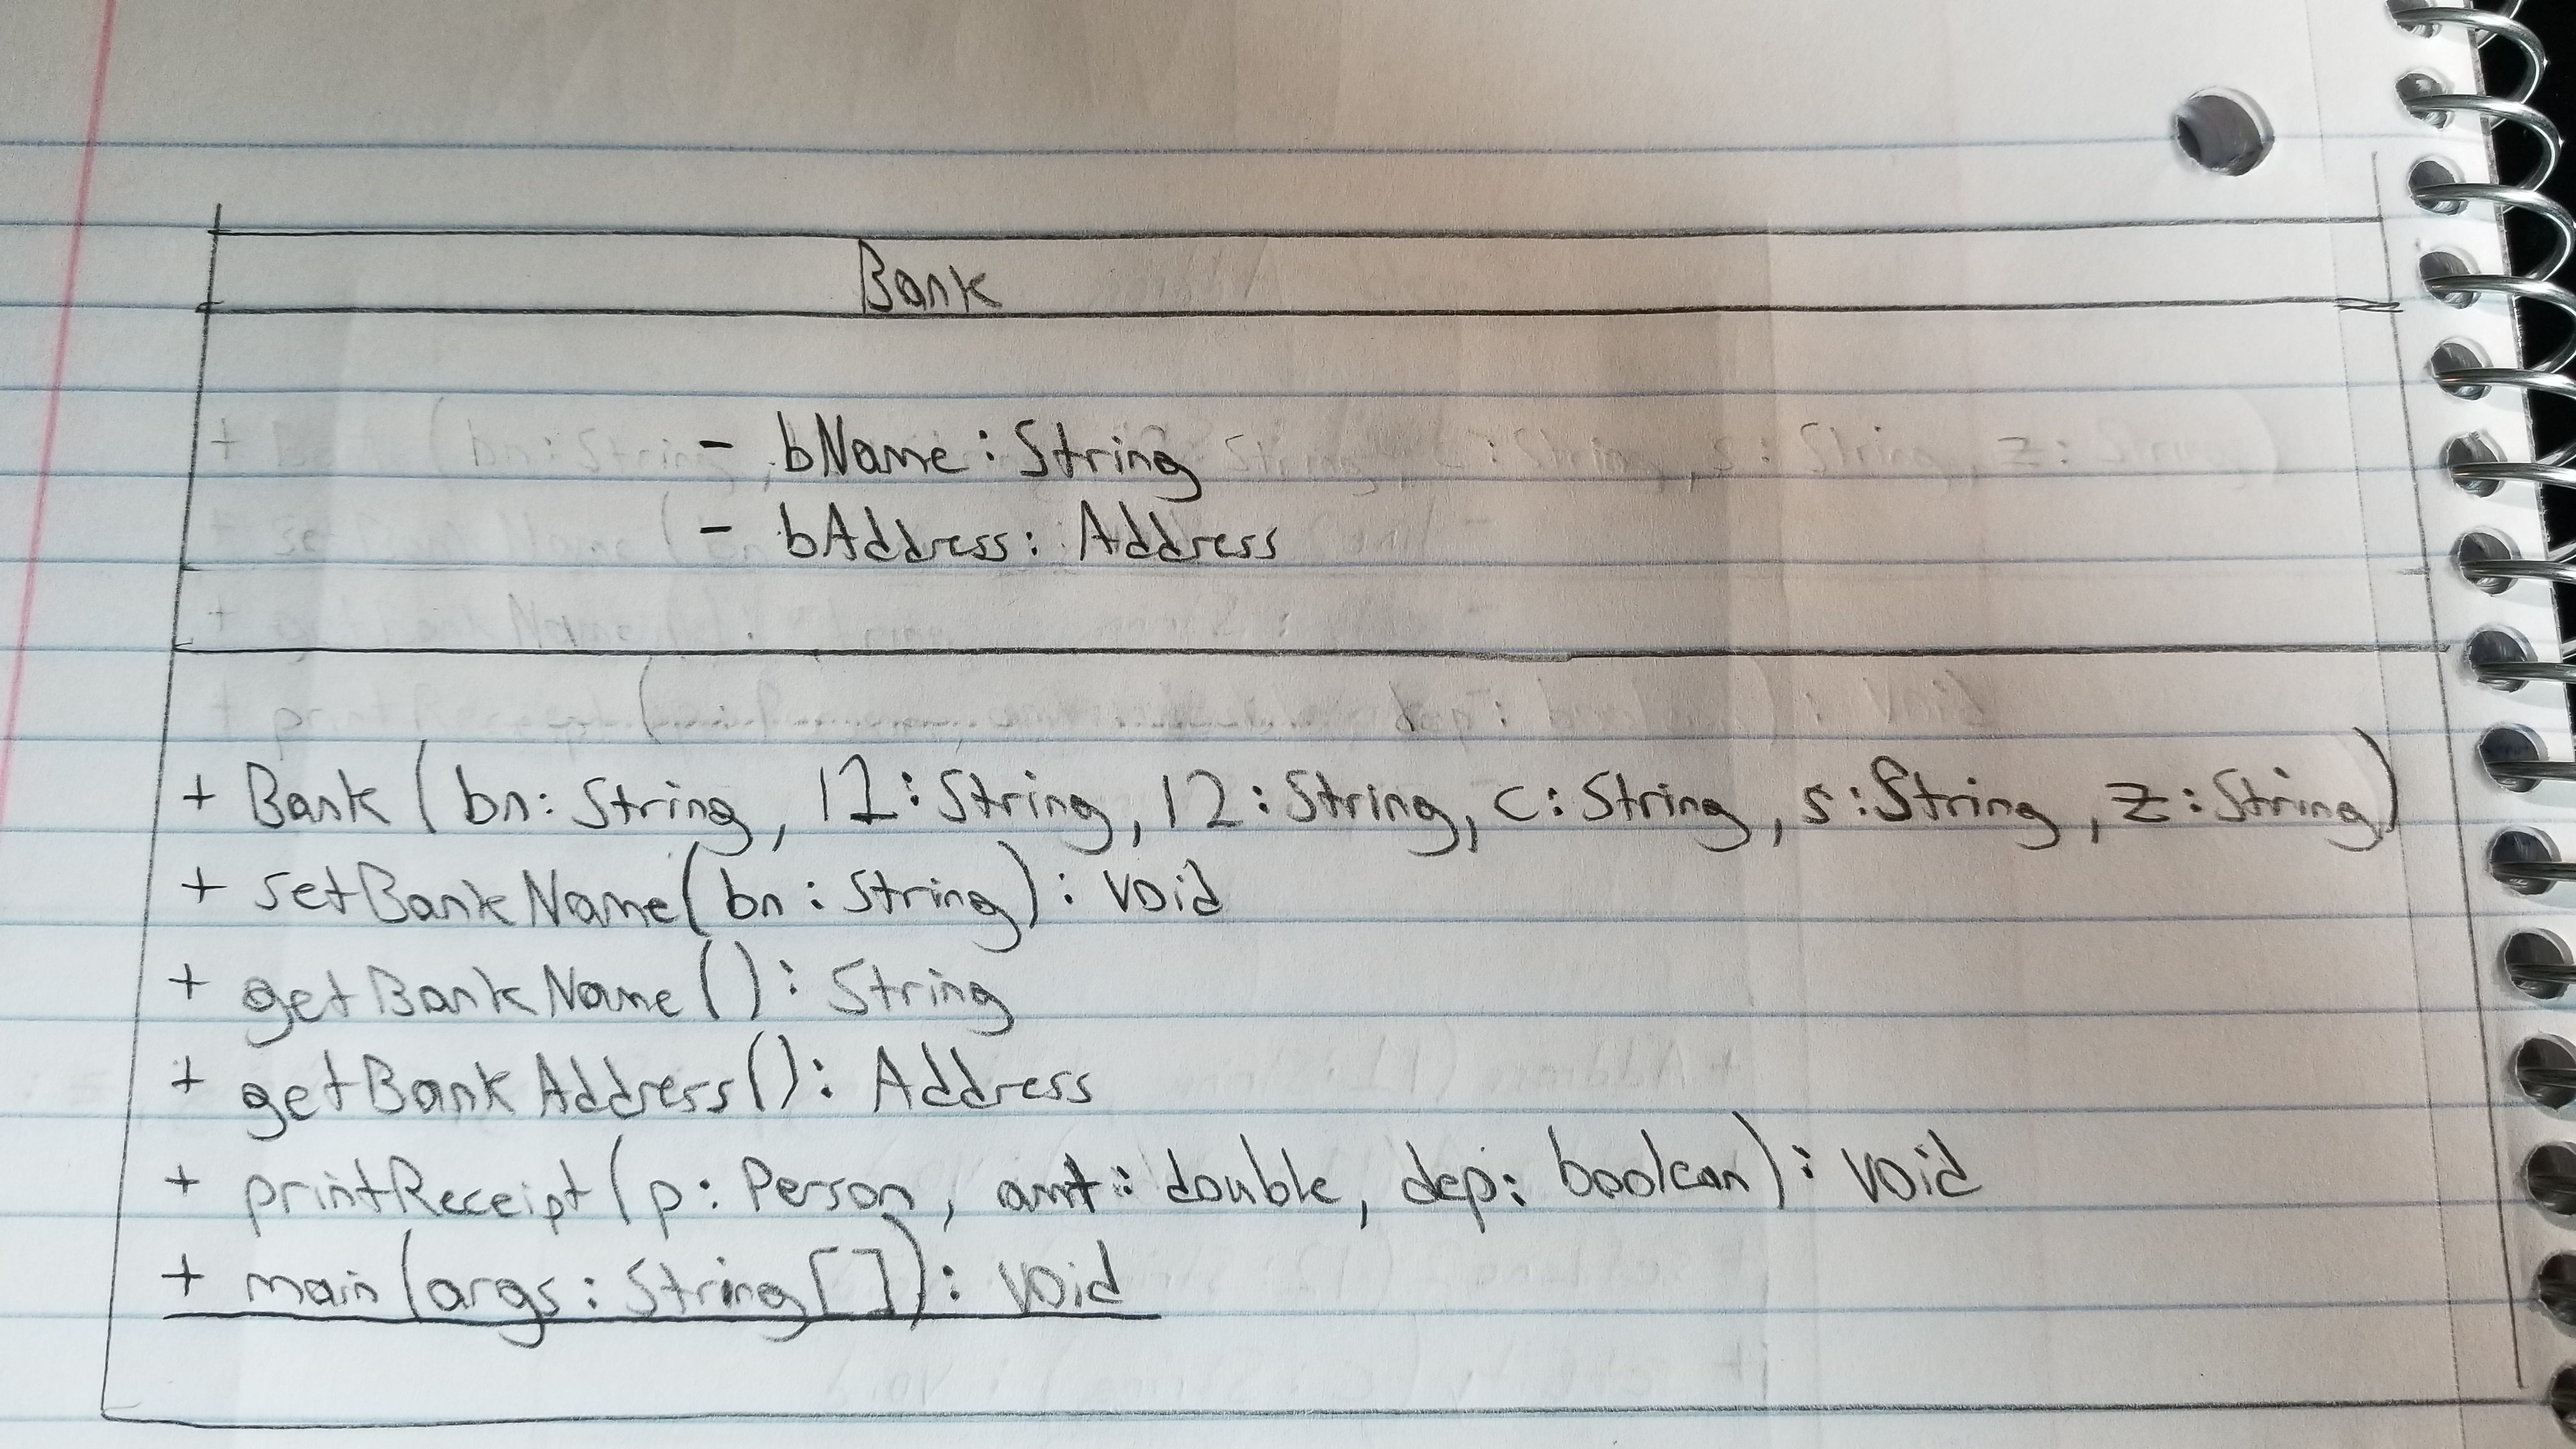 Bank
- bName : String
- bAddress : Address
+ Bank ( bn : String , l1 : String , l2 : String , c : String , s : String , z : String )
+ setBankName ( bn : String ) : void
+ getBankName ( ) : String
+ getBankAddress ( ) : Address
+ printReceipt ( p : Person , amt : double , dep : boolean ) : void
+ main ( args : String [ ] ) : void